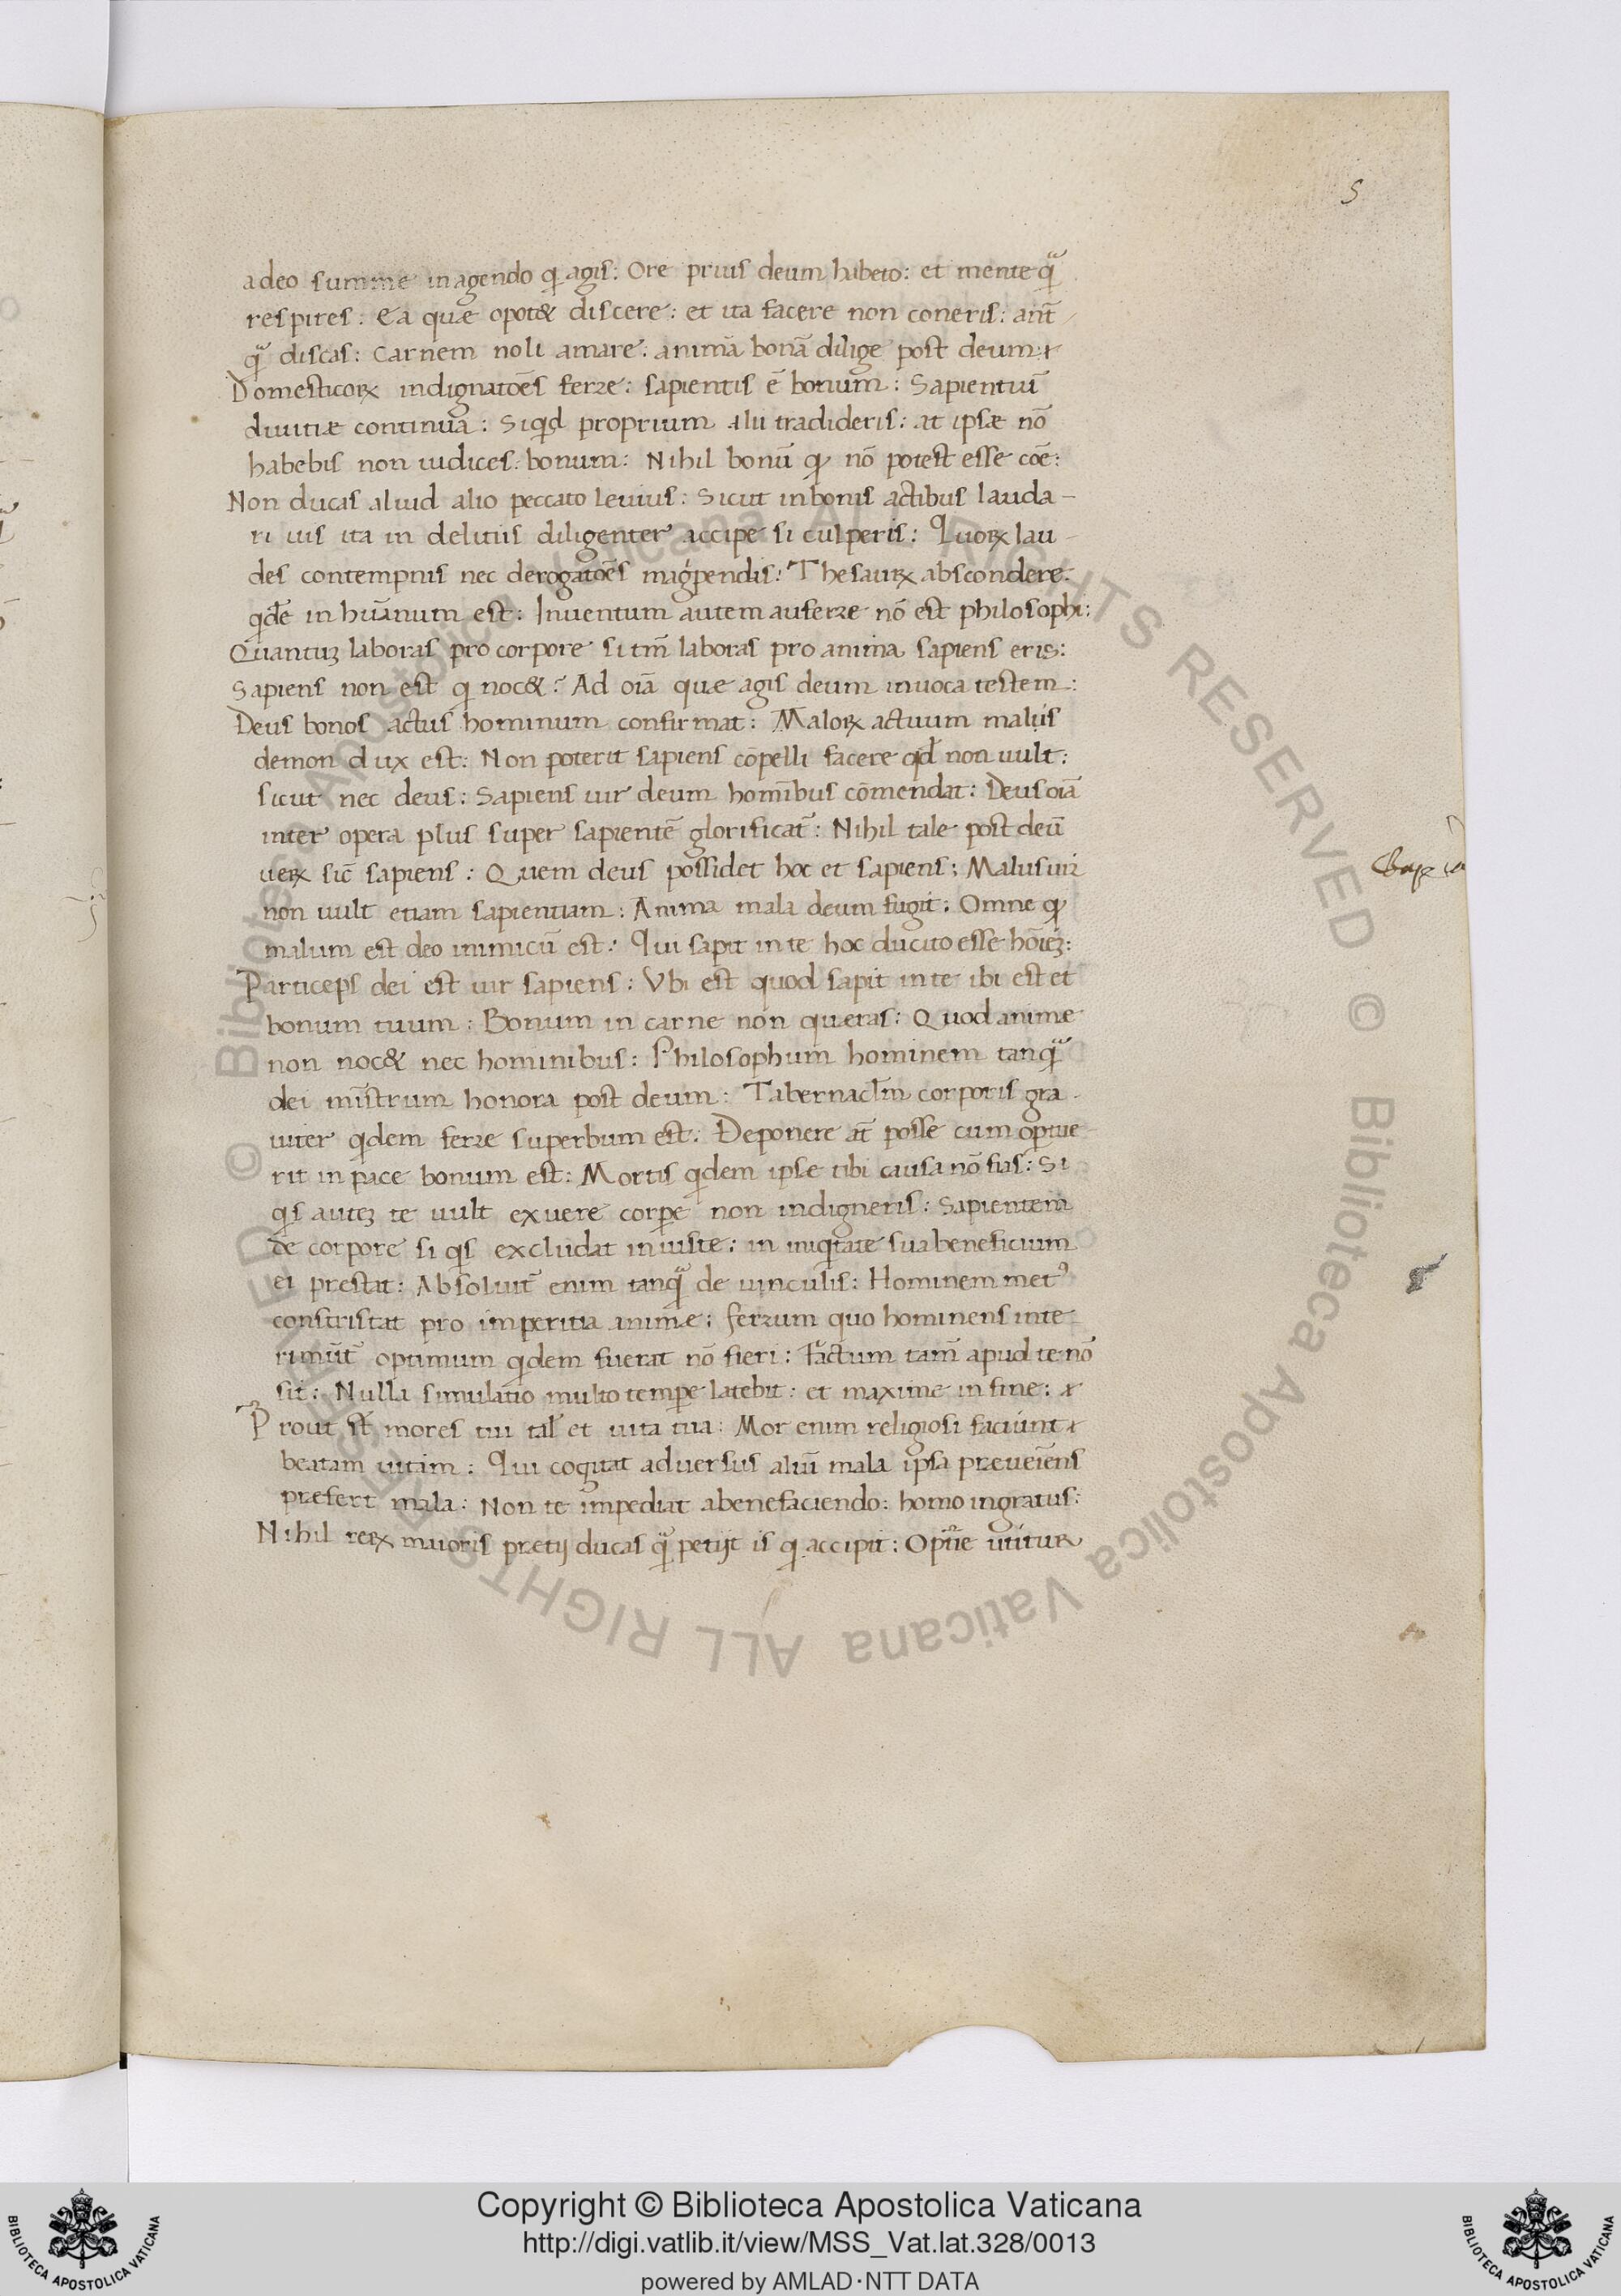 5
adeo summe in agendo q̄ agis: Ore prius deum habeto: et mente qᷓ
respires: Ea quæ opot& discere: et ita facere non coneris: anт̄
qᷓ discas: Carnem noli amare: animā bonā dilige post deum:
Domesticoꝝ indignatōes ferre: sapientis ē bonum: Sapientū
diuitiæ continua: Siqd proprium alii tradideris: at ipsæ nō
habebis non iudices bonum: Nihil bonū qꝫ nō potest esse cōe:
Non ducas aliud alio peccato leuius: Sicut in bonis actibus lauda-
ri uis ita in delitiis diligenter accipe si culperis: Quoꝝ lau-
des contempnis nec derogatōes magͥpendis: Thesauꝝ abscondere
qͥdē inhūanum est: Inuentum autem auferre nō est philosophi:
Quantuꝫ laboras pro corpore si tm̄ laboras pro anima sapiens eris:
Sapiens non est q̄ noc&: Ad oīa quæ agis deum inuoca testem:
Deus bonos actus hominum confirmat: Maloꝝ actuum malus
demon dux est: Non poterit sapiens cōpelli facere qd̄ non uult:
sicut nec deus: Sapiens uir deum homībus cōmendat: Deus oīa
inter opera plus super sapientē glorificat̄: Nihil tale post deū
ueꝝ sic̄ sapiens: Quem deus possidet hoc et sapiens: Malus uir
non uult etiam sapientiam: Anima mala deum fugit: Omne qꝫ
malum est deo inimicū est: Qui sapit in te hoc ducito esse hōieꝫ:
Particeps dei est uir sapiens: Vbi est quod sapit in te ibi est et
bonum tuum: Bonum in carne non queras: Quod anime
non noc& nec hominibus: Philosophum hominem tanqᷓ
dei mīstrum honora post deum: Tabernacl̄m corporis gra-
uiter qͥdem ferre superbum est: Deponere at̄ posse cum optue-
rit in pace bonum est: Mortis qͥdem ipse tibi causa nō fias: Si
qͥs auteꝫ te uult exuere corꝑe non indigneris: Sapientem
de corpore si qͥs excludat iniuste: in iniqͥtate sua beneficium
ei prestat: Absoluit̄ enim tanqᷓ de uinculis: Hominem metꝰ
constristat pro imperitia animæ: ferrum quo hominens inte-
rimūt̄ optimum qͥdem fuerat nō fieri: Factum tam̄ apud te nō
sit: Nulla simulatio multo temꝑe latebit: et maxime in fine:
Prout st̄ mores tui tal̄ et uita tua: Mor enim religiosi faciunt
beatam uitam: Qui cogitat aduersus aliū mala ipsa præueiēns
præfert mala: Non te impediat a benefaciendo: homo ingratus:
Nihil reꝝ maioris prætij ducas qᷓ petijt is q̄ accipit: Optīe utitur
Copyright © Biblioteca Apostolica Vaticana
http://digi.vatlib.it/view/MSS_Vat.lat.328/0013
powered by AMLAD·NTT DATA
BIBLIOTECA APOSTOLICA VATICANA
BIBLIOTECA APOSTOLICA VATICANA
© Biblioteca Apostolica Vaticana ALL RIGHTS RESERVED © Biblioteca Apostolica Vaticana ALL RIGHTS RESERVED